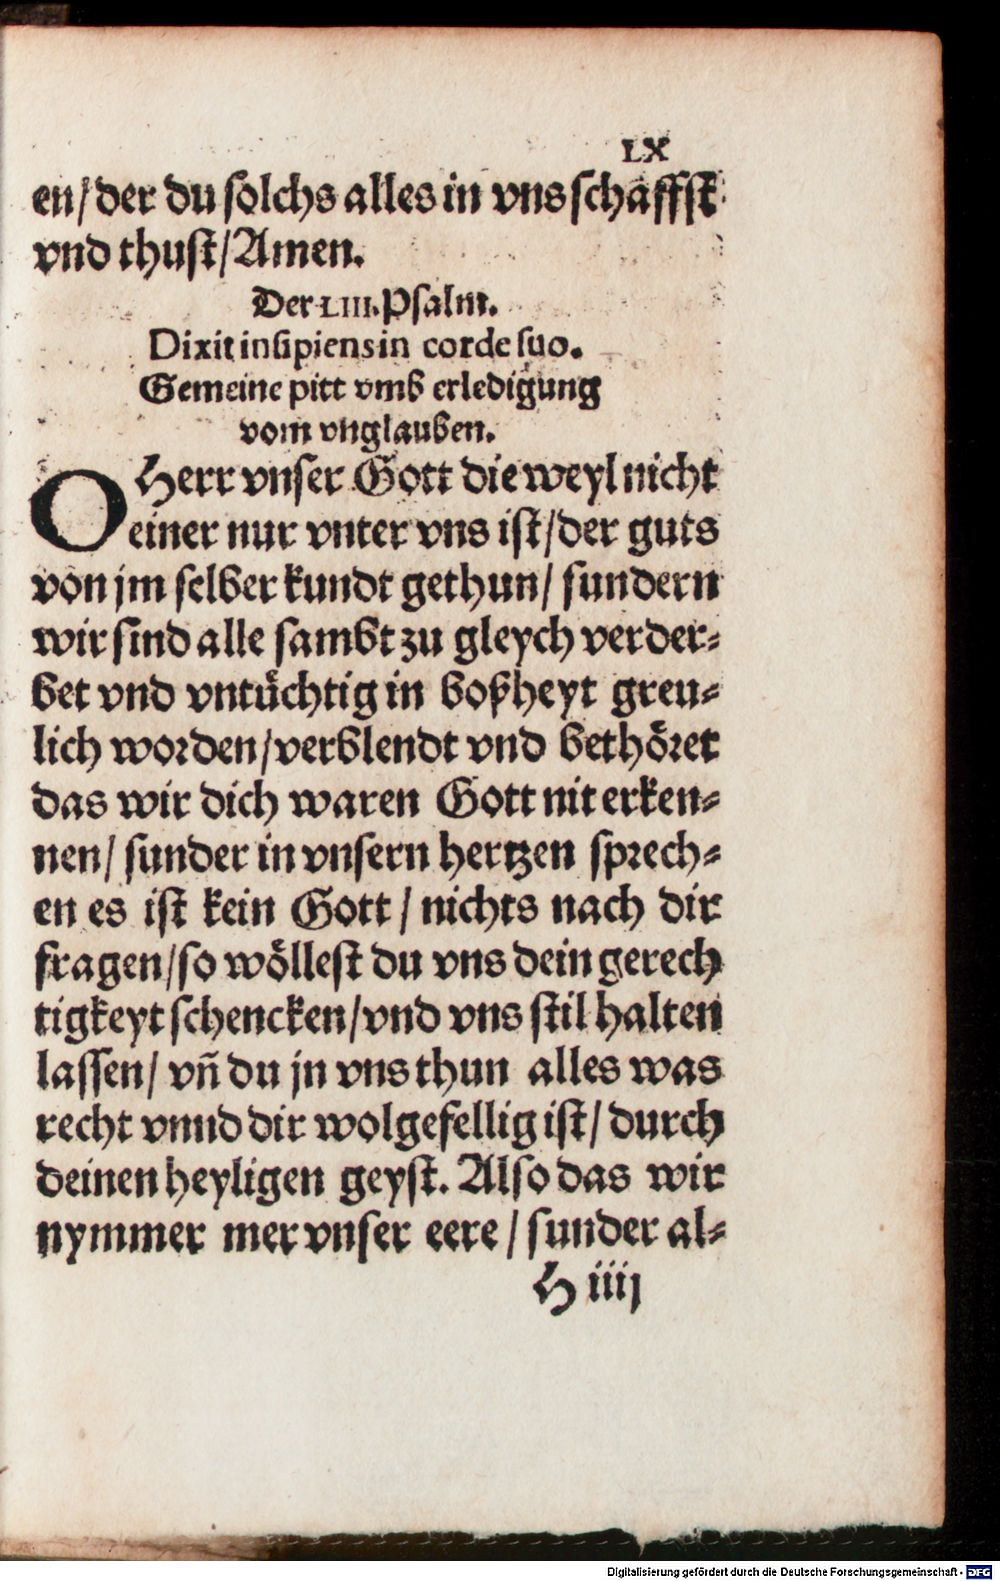 LX
en/ der du solchs alles in vns schaffst
vnd thust/ Amen.
Der LIII. Psalm.
Dixit insipiens in corde suo.
Gemeine pitt vmb erledigung
vom vnglauben.
O Herr vnser Gott die weyl nicht
einer nur vnter vns ist/ der guts
von jm selber kundt gethun/ sundern
wir sind alle sambt zu gleych verder⸗
bet vnd vntüchtig in boßheyt greu⸗
lich worden/ verblendt vnd bethöret
das wir dich waren Gott nit erken⸗
nen/ sunder in vnsern hertzen sprech⸗
en es ist kein Gott/ nichts nach dir
fragen/ so wöllest du vns dein gerech
tigkeyt schencken/ vnd vns stil halten
lassen/ vñ du jn vns thun alles was
recht vnnd dir wolgefellig ist/ durch
deinen heyligen geyst. Also das wir
nymmer mer vnser eere/ sunder al⸗
H iiij
Digitalisierung gefördert durch die Deutsche Forschungsgemeinschaft - DFG